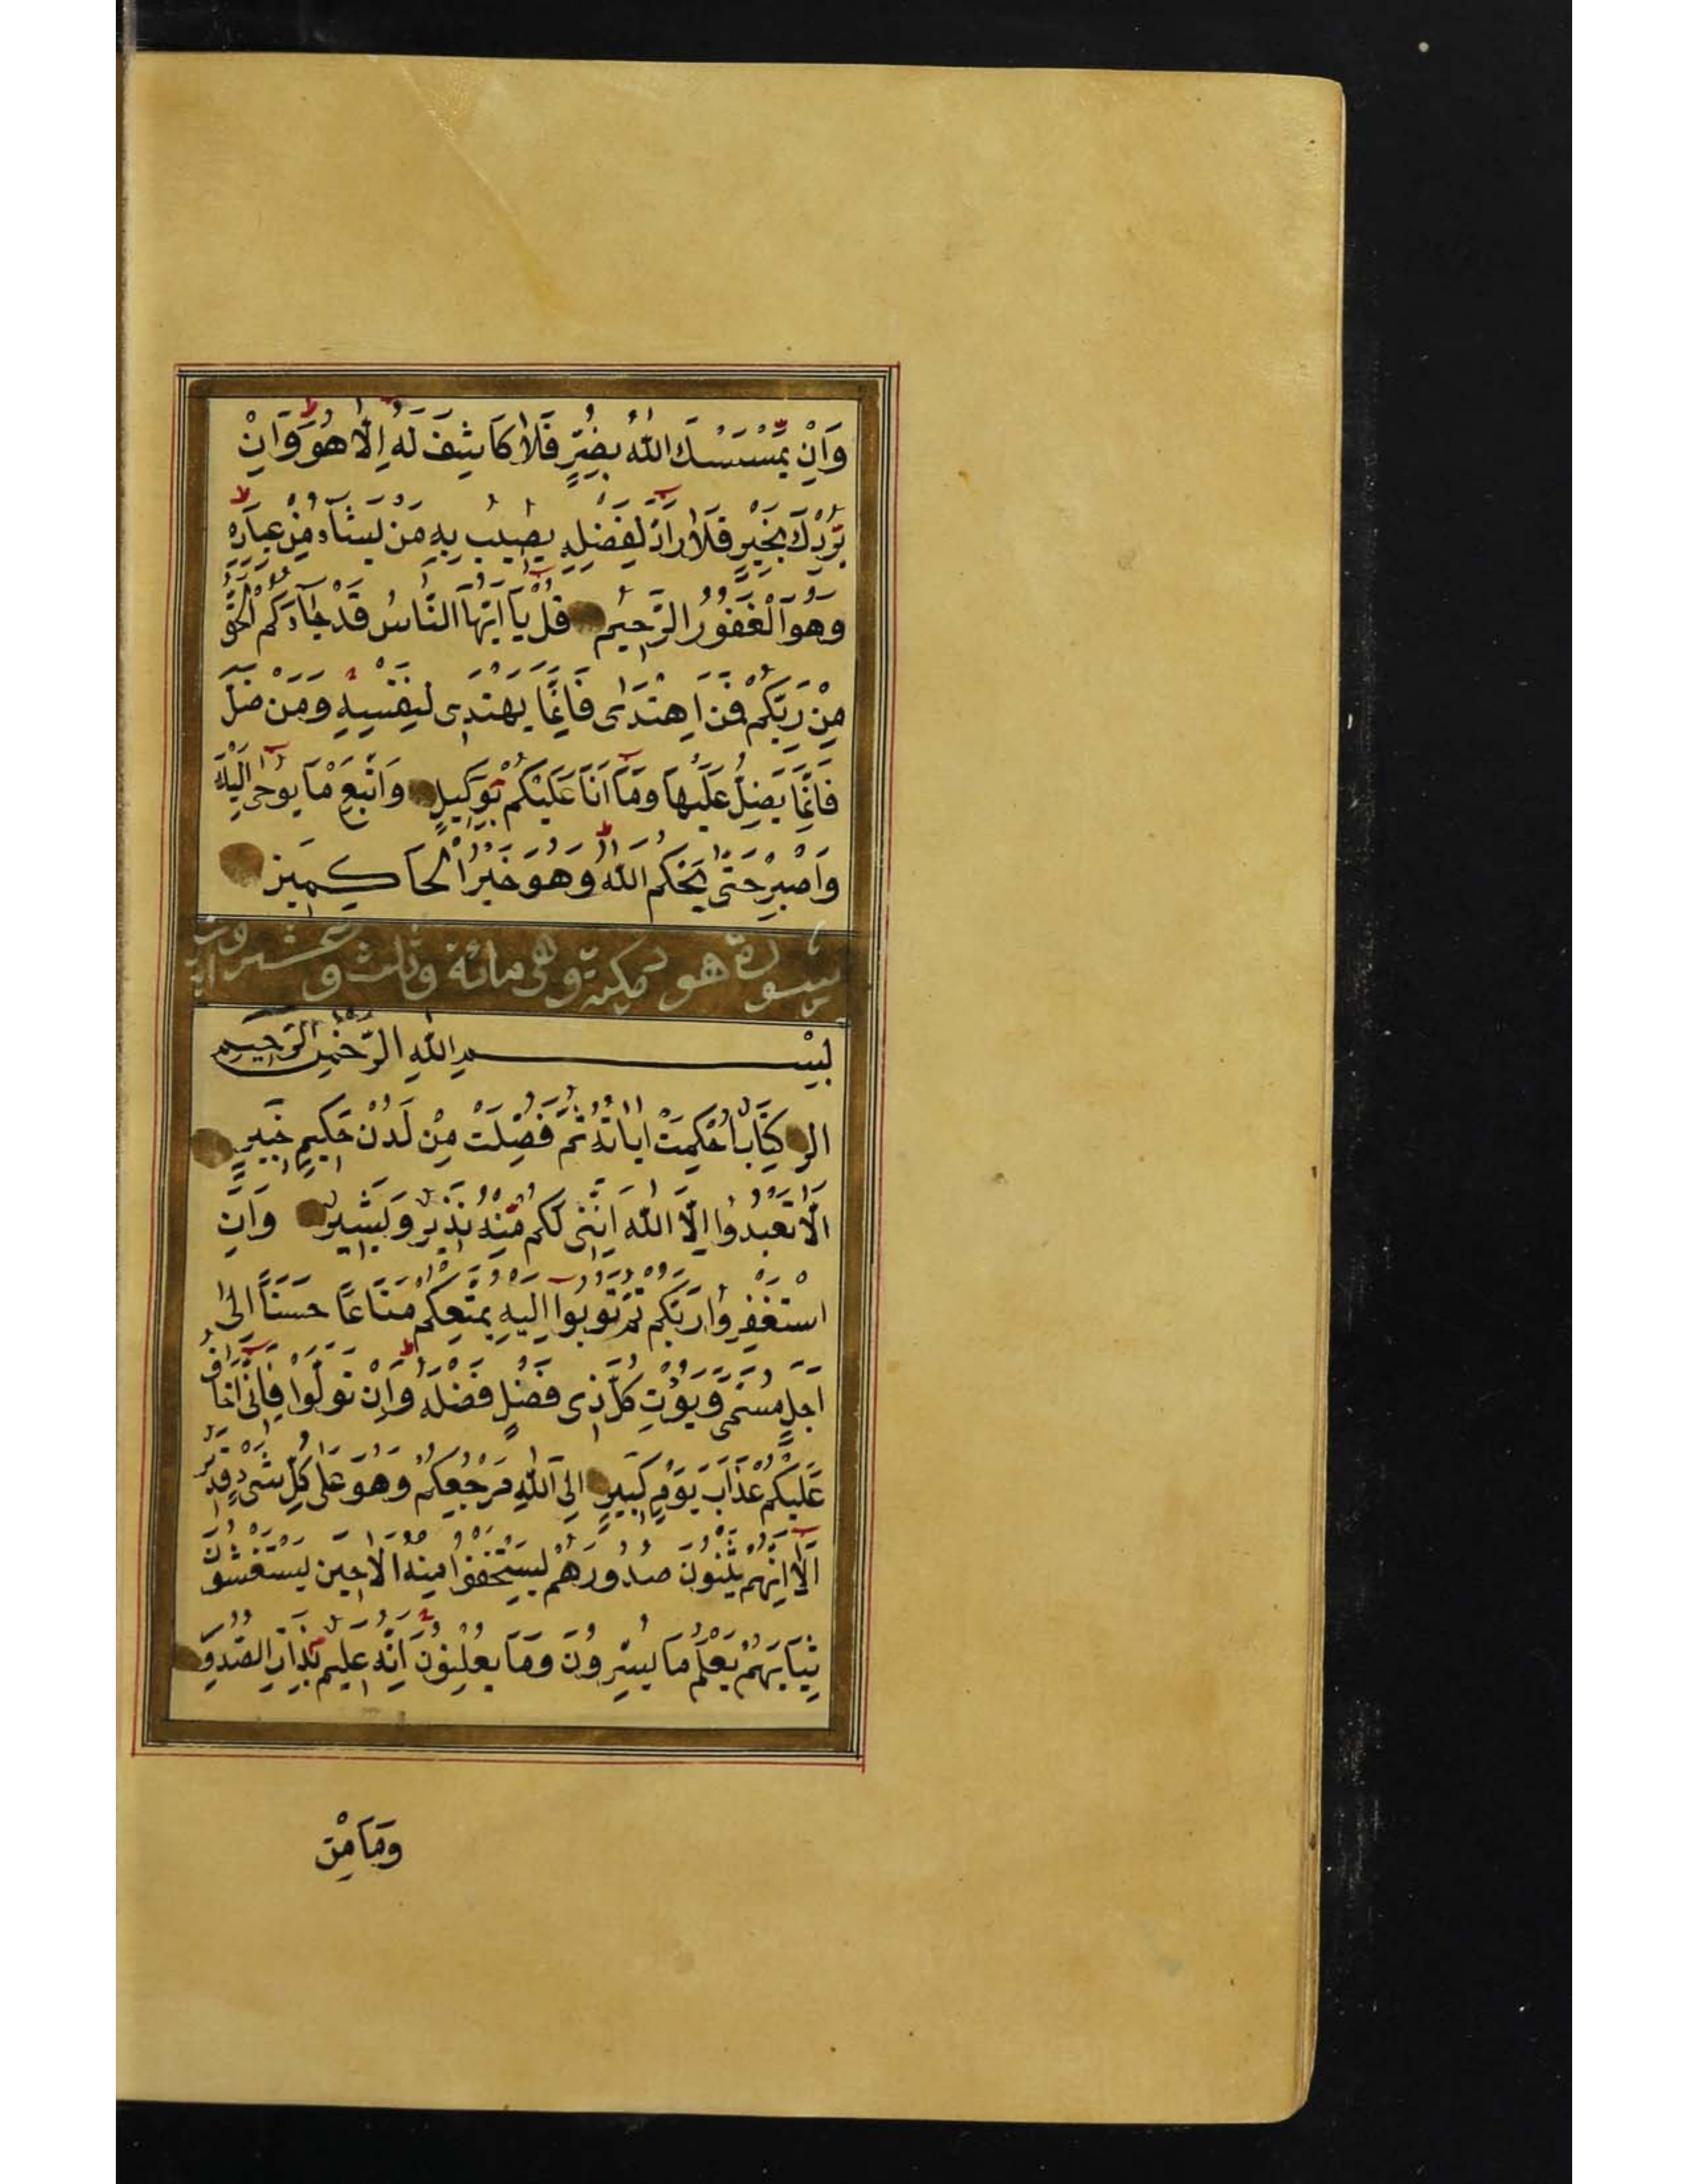 وَاِنْ يَمْسَسْكَ اللّٰهُ بِضُرٍّ فَلَا كَاشِفَ لَهُ اِلَّا هُوَ وَاِنْ
يُرِدْكَ بِخَيْرٍ فَلَا رَآدَّ لِفَضْلِهِ يُصِيبُ بِهِ مَنْ يَشَآءُ مِنْ عِبَادِهِ
وَهُوَ الْغَفُورُ الرَّحِيمُ قُلْ يَآ اَيُّهَا النَّاسُ قَدْ جَآءَكُمُ الْحَقُّ
مِنْ رَبِّكُمْ فَمَنِ اهْتَدٰى فَاِنَّمَا يَهْتَدِى لِنَفْسِهِ وَمَنْ ضَلَّ
فَاِنَّمَا يَضِلُّ عَلَيْهَا وَمَآ اَنَا عَلَيْكُمْ بِوَكِيلٍ وَاتَّبِعْ مَا يُوحٰى اِلَيْكَ
وَاصْبِرْ حَتّٰى يَحْكُمَ اللّٰهُ وَهُوَ خَيْرُ الْحَاكِمِينَ
سورة هود مكية وهى مائة وثلث وعشرون اية
بِسْمِ اللّٰهِ الرَّحْمٰنِ الرَّحِيمِ
الر كِتَابٌ اُحْكِمَتْ اٰيَاتُهُ ثُمَّ فُصِّلَتْ مِنْ لَدُنْ حَكِيمٍ خَبِيرٍ
اَلَّا تَعْبُدُوا اِلَّا اللّٰهَ اِنَّنِى لَكُمْ مِنْهُ نَذِيرٌ وَبَشِيرٌ وَاَنِ
اسْتَغْفِرُوا رَبَّكُمْ ثُمَّ تُوبُوا اِلَيْهِ يُمَتِّعْكُمْ مَتَاعًا حَسَنًا اِلٰى
اَجَلٍ مُسَمًّى وَيُؤْتِ كُلَّ ذِى فَضْلٍ فَضْلَهُ وَاِنْ تَوَلَّوْا فَاِنِّى اَخَافُ
عَلَيْكُمْ عَذَابَ يَوْمٍ كَبِيرٍ اِلَى اللّٰهِ مَرْجِعُكُمْ وَهُوَ عَلٰى كُلِّ شَىْءٍ قَدِيرٌ
اَلَآ اِنَّهُمْ يَثْنُونَ صُدُورَهُمْ لِيَسْتَخْفُوا مِنْهُ اَلَا حِينَ يَسْتَغْشُونَ
ثِيَابَهُمْ يَعْلَمُ مَا يُسِرُّونَ وَمَا يُعْلِنُونَ اِنَّهُ عَلِيمٌ بِذَاتِ الصُّدُورِ
وَمَا مِنْ